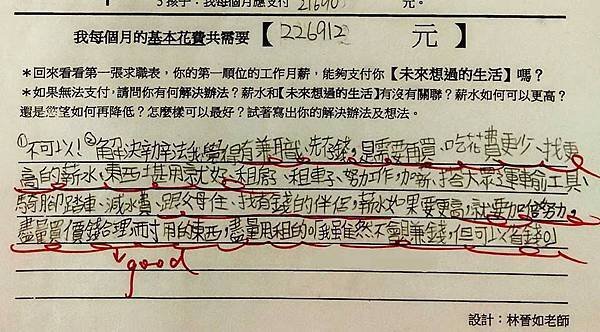 3 孩子：我每個月應支付 21690 元。
我每個月的基本花費共需要【 226912 元 】
＊回來看看第一張求職表，你的第一順位的工作月薪，能夠支付你【未來想過的生活】嗎？
＊如果無法支付，請問你有何解決辦法？薪水和【未來想過的生活】有沒有關聯？薪水如何可以更高？
還是慾望如何再降低？怎麼樣可以最好？試著寫出你的解決辦法及想法。
①不可以！②解決辦法我覺得有兼職、先存錢，是需要再買、吃花費更少、找更
高的薪水、東西堪用就好、租房、租車子、努力工作加薪、搭大眾運輸工具、
騎腳踏車、減水費、跟父母住、找有錢的伴侶，薪水如果要更高就要加倍努力。
盡量買價錢合理耐用的東西，盡量用租的。我雖然不會賺錢，但可以省錢。
good
設計：林晉如老師